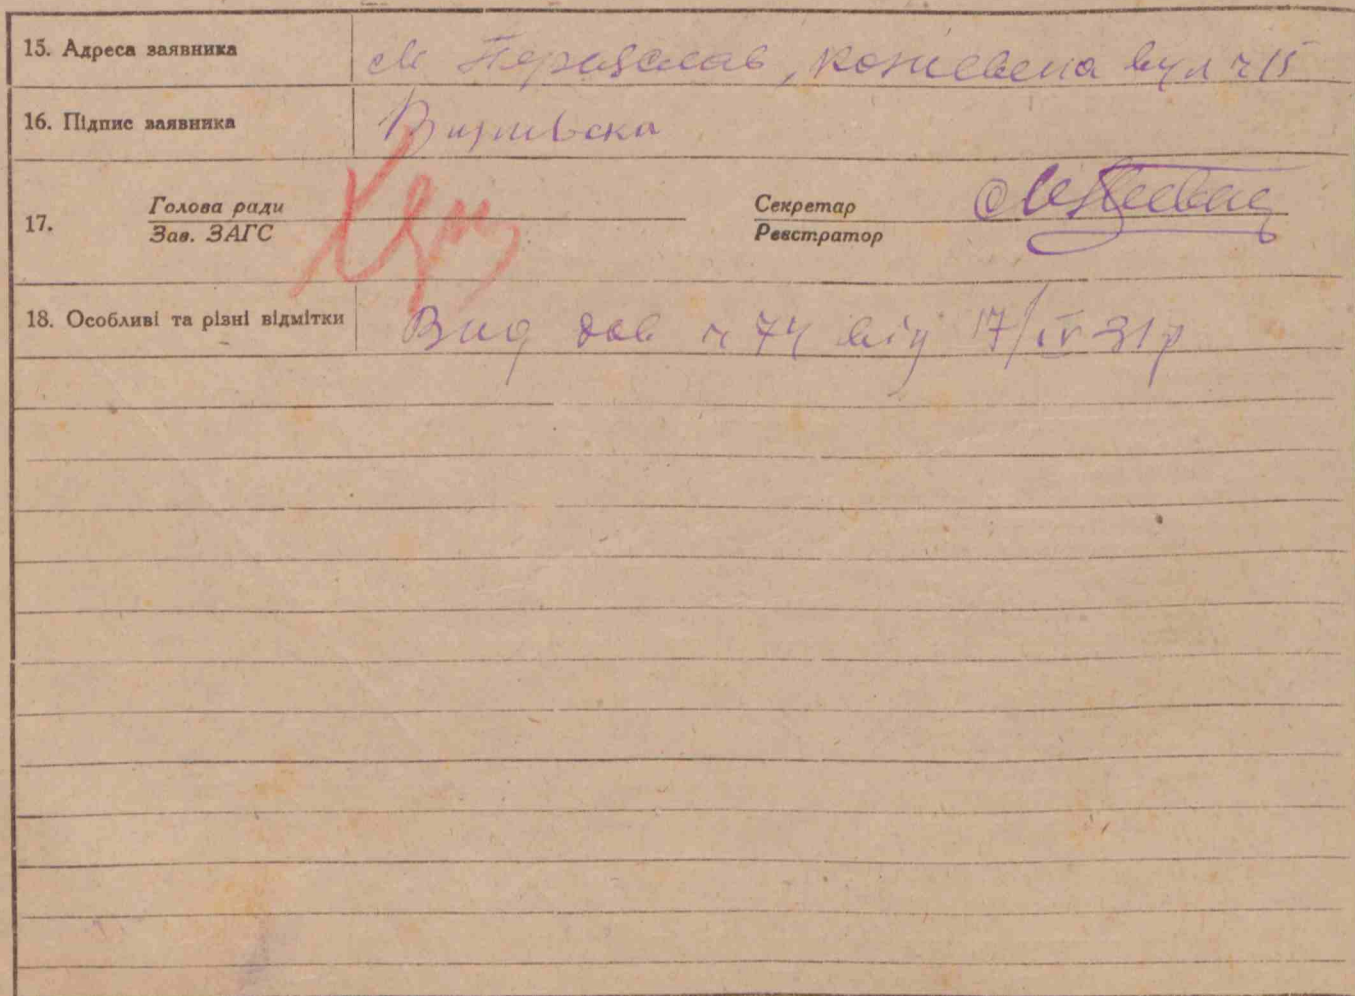 15. Адреса заявника м Переяслав, вул ч 15
16. Підпис заявника
17. Голова ради
Зав. ЗАГС
Секретар
Реєстратор
18. Особливі та різні відмітки Вид дов ч 74 від 17/IV 31р